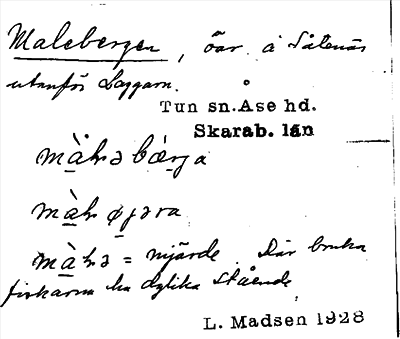 Malebergen, öar å Såtenäs
utanför Laggarn.
Tun sn. Åse hd.
Skarab. län
öjara
= mjärde. Där bruka
fiskarna ha dylika stående
L. Madsen 1928